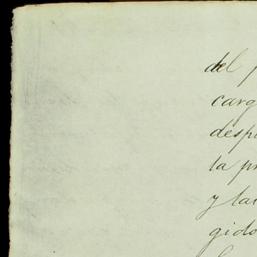 del p
carg
desp
la pr
y la
gido